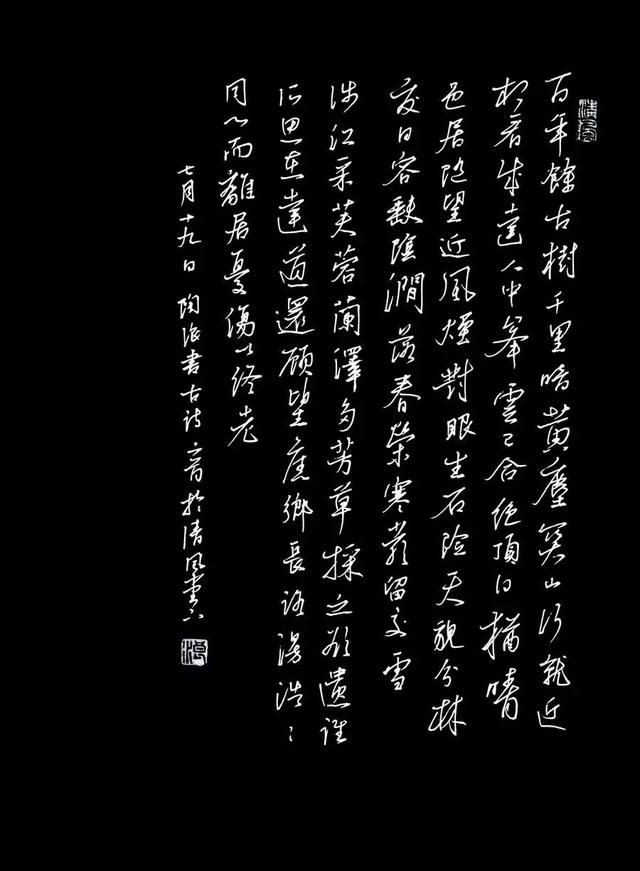 百年餘古樹千里暗黄塵关山行就近
相看成遠人中峯雲已合絕頂日猶晴
邑居隨望近風煙對眼生石險天貌分林
交日容缺陰澗落春榮寒巖留夏雪
涉江采芙蓉蘭澤多芳草採之欲遺誰
所思在遠道還顧望舊鄉長路漫浩〻
同心而離居憂傷以終老
七月十九日陶浪書古詩於清風